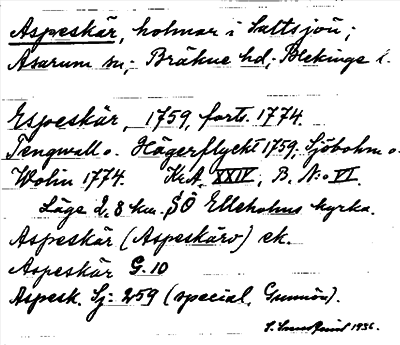 Aspeskär, holmar i Saltsjön;
Asarum sn; Bräkne hd; Blekinge l.
Espeskär, 1759, forts. 1774.
Tengwall o. Hägerflycht 1759, Sjöbohm o.
Wolin 1774. Kr.A. XXIV, B. N:o VI.
Läge 2,8 km. SÖ Elleholms kyrka.
Aspeskär (Aspeskärv) ek.
Aspeskär G. 10
Aspesk. Sj: 259 (special, Gunnön).
1936.